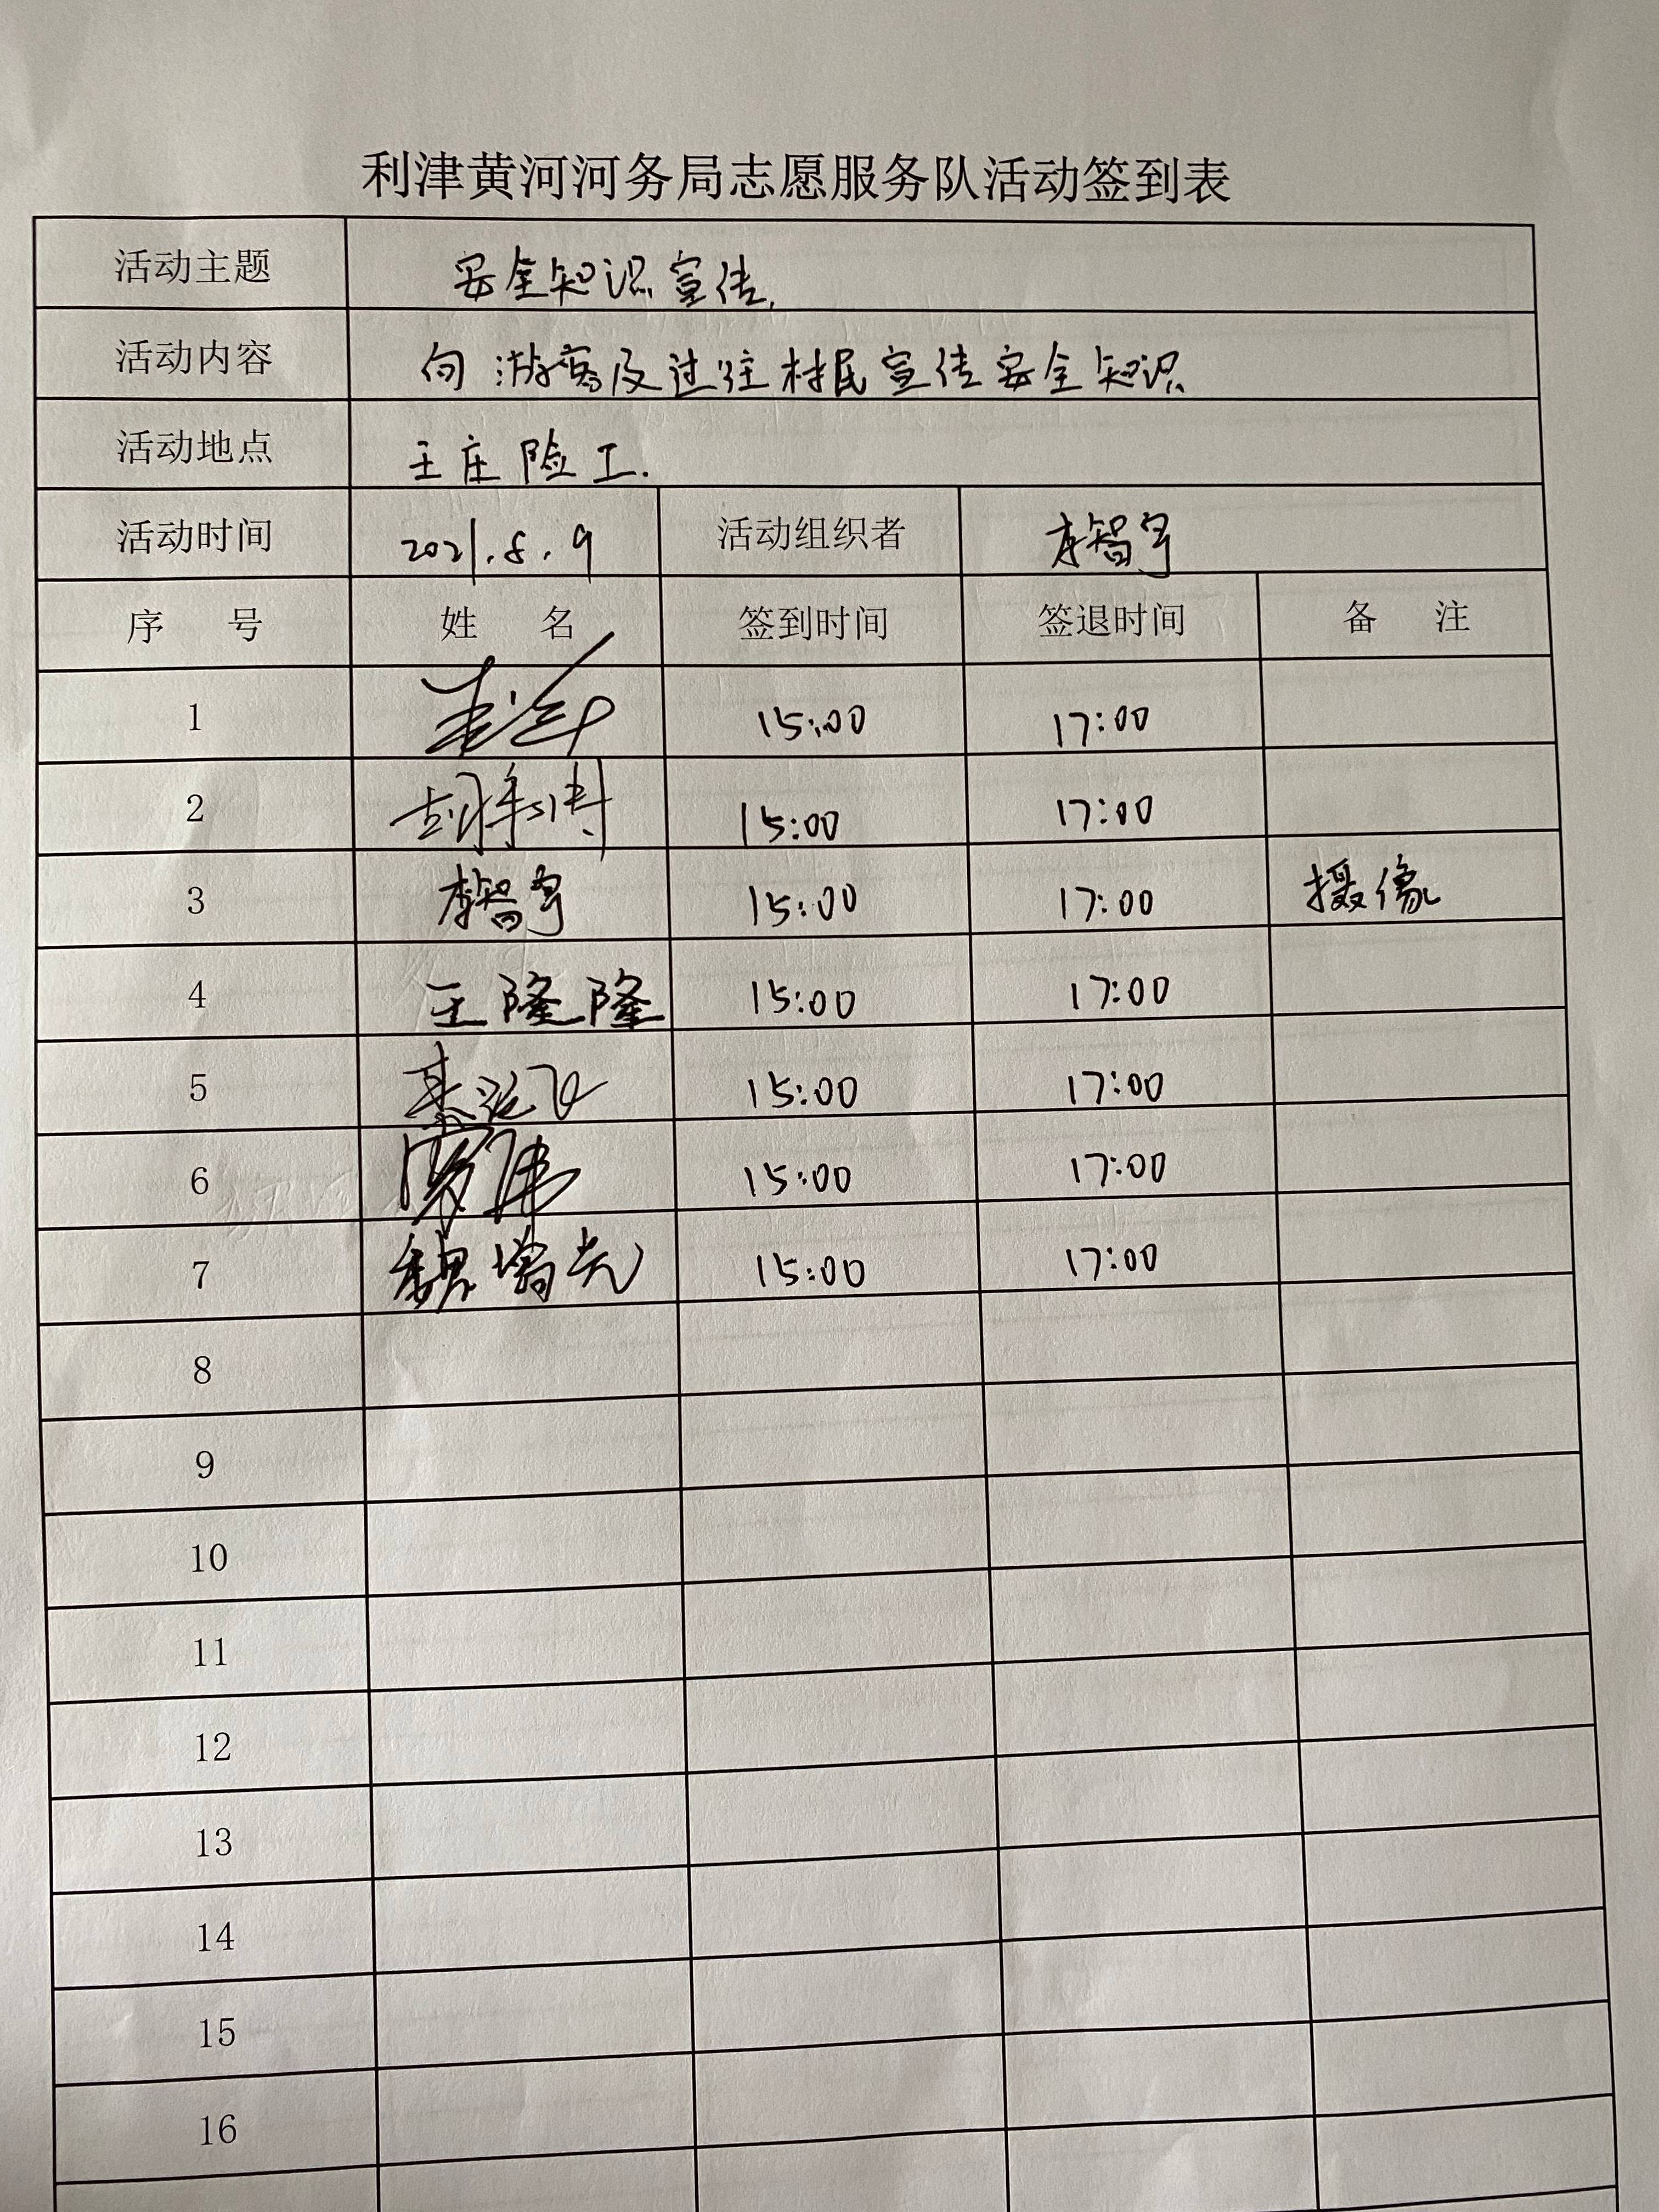 利津黄河河务局志愿服务队活动签到表
活动主题 安全知识宣传.
活动内容 向游客及过往村民宣传安全知识
活动地点 王庄险工.
活动时间 2021.8.9 活动组织者 李智宇
序号 姓名 签到时间 签退时间 备注
1 15:00 17:00
2 15:00 17:00
3 李智宇 15:00 17:00 摄像
4 王隆隆 15:00 17:00
5 15:00 17:00
6 15:00 17:00
7 魏增光 15:00 17:00
8
9
10
11
12
13
14
15
16